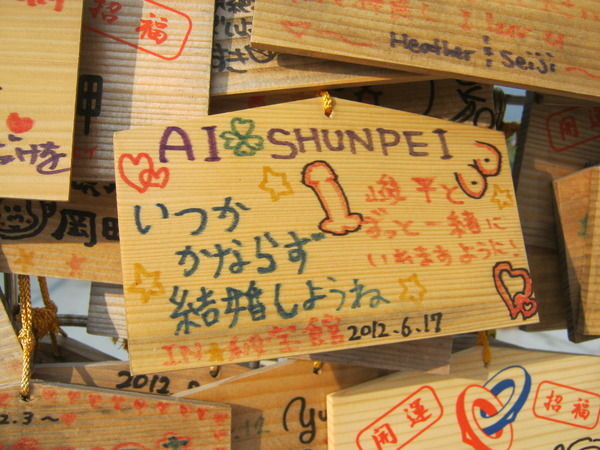 招福
Heather & Seiji
開運
AI SHUNPEI
いつか
かならず
結婚しようね
峻平と
ずっと一緒に
いれますように!
IN 秘宝館 2012.6.17
2012
2.3~
開運
招福